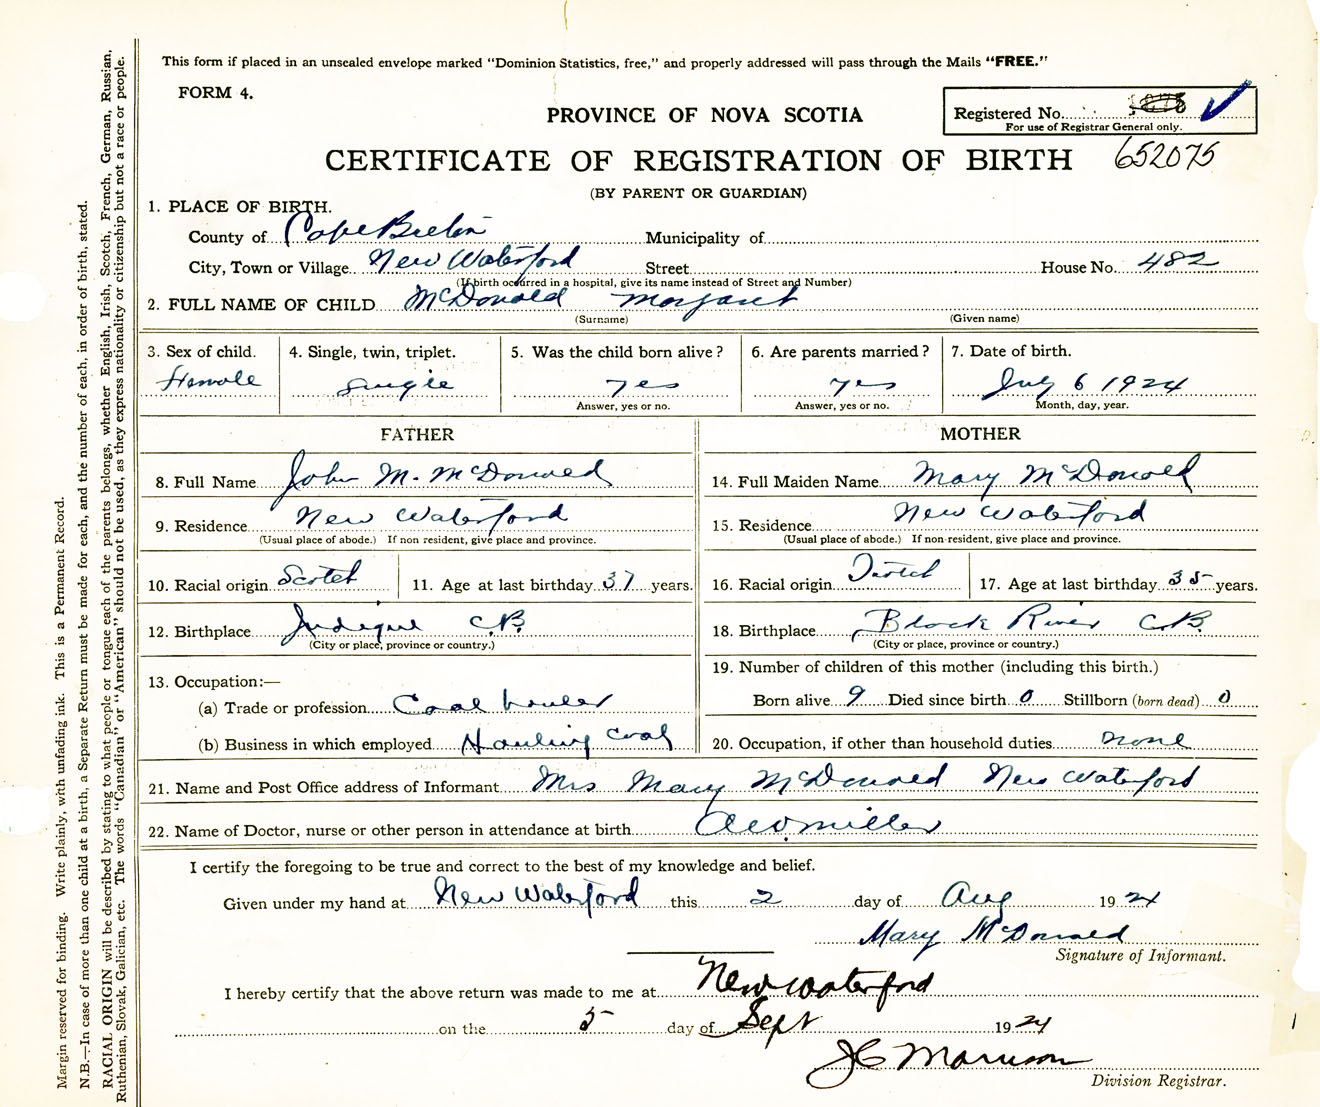 This form if placed in an unsealed envelope marked "Dominion Statistics, free," and properly addressed will pass through the Mails "FREE."
FORM 4.
PROVINCE OF NOVA SCOTIA
Registered No.
For use of Registrar General only.
CERTIFICATE OF REGISTRATION OF BIRTH 652075
(BY PARENT OR GUARDIAN)
1. PLACE OF BIRTH.
County of Cape Breton Municipality of
City, Town or Village New Waterford Street House No. 482
(If birth occurred in a hospital, give its name instead of Street and Number)
2. FULL NAME OF CHILD McDonald Margaret
(Surname) (Given name)
3. Sex of child. 4. Single, twin, triplet. 5. Was the child born alive? 6. Are parents married? 7. Date of birth.
Female Single yes yes July 6 1924
Answer, yes or no. Answer, yes or no. Month, day, year.
FATHER MOTHER
8. Full Name John M. McDonald 14. Full Maiden Name Mary McDonald
9. Residence New Waterford 15. Residence New Waterford
(Usual place of abode.) If non resident, give place and province. (Usual place of abode.) If non-resident, give place and province.
10. Racial origin Scotch 11. Age at last birthday 37 years. 16. Racial origin Scotch 17. Age at last birthday 35 years.
12. Birthplace Judique C.B. 18. Birthplace Black River C.B.
(City or place, province or country.) (City or place, province or country.)
13. Occupation:— 19. Number of children of this mother (including this birth.)
(a) Trade or profession Coal hauler Born alive 9 Died since birth 0 Stillborn (born dead) 0
(b) Business in which employed Hauling coal 20. Occupation, if other than household duties none
21. Name and Post Office address of Informant Mrs Mary McDonald New Waterford
22. Name of Doctor, nurse or other person in attendance at birth Miller
I certify the foregoing to be true and correct to the best of my knowledge and belief.
Given under my hand at New Waterford this 2 day of Aug 1924
Mary McDonald
Signature of Informant.
I hereby certify that the above return was made to me at New Waterford
on the 5 day of Sept 1924
J C Morrison
Division Registrar.
Margin reserved for binding. Write plainly, with unfading ink. This is a Permanent Record.
N.B.—In case of more than one child at a birth, a Separate Return must be made for each, and the number of each, in order of birth, stated.
RACIAL ORIGIN will be described by stating to what people or tongue each of the parents belongs, whether English, Irish, Scotch, French, German, Russian,
Ruthenian, Slovak, Galician, etc. The words "Canadian" or "American" should not be used, as they express nationality or citizenship but not a race or people.